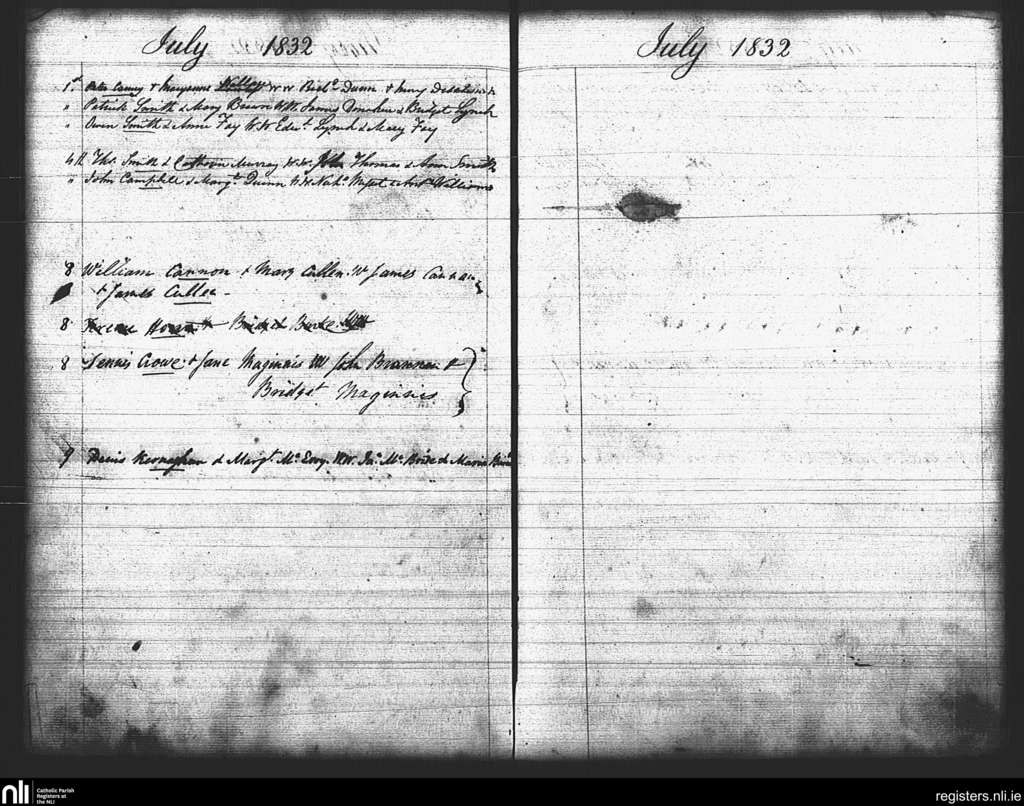 July 1832
1st Peter Canny & Maryanne Wr Richd Dunn &
" Patrick Smith & Mary Brown Wtt James & Bridget Lynch
" Owen Smith & Anne Fay W.W Edwd Lynch & Mary Fay
4th Ths. Smith & Catherine Murray W.W. Thomas & Ann Smith
" John Campbell & Margt Quinn W.W & Williams
8 William Cannon & Mary Cullen. W James Cannan
& James Cullen -
8
8 Dennis Crowe & Jane Maginnis W John Brannan &
Bridget Maginnis
9 Denis Kernaghan & Margt Mc Evoy WW. Jno. Mc Bride & Maria
July 1832
nli
Catholic Parish
Registers at
the NLI
registers.nli.ie